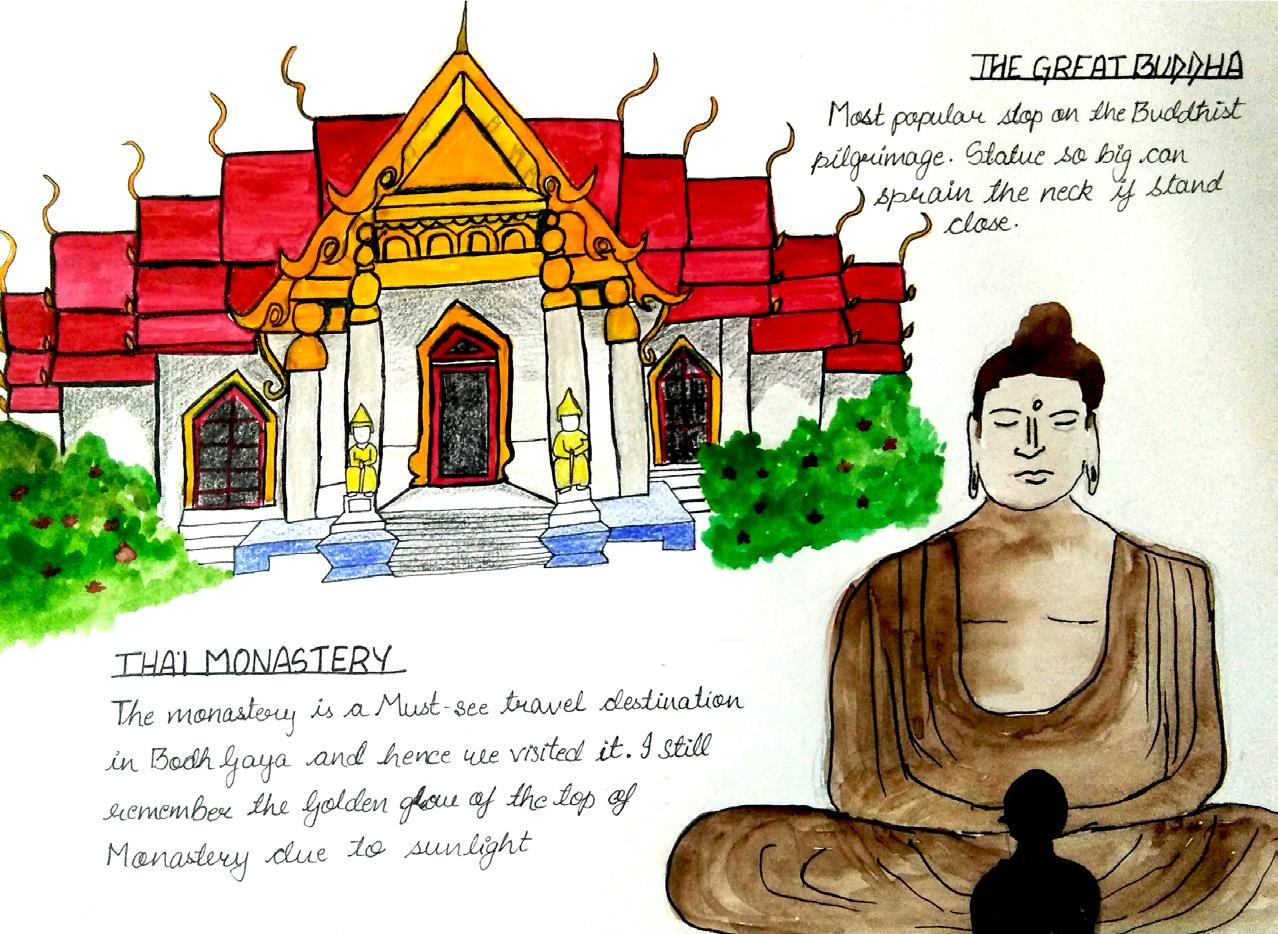 THE GREAT BUDDHA
Most popular stop on the Buddhist
pilgrimage. Statue so big can
sprain the neck if stand
close.
THAI MONASTERY
The monastery is a Must-see travel destination
in Bodh Gaya and hence we visited it. I still
remember the Golden glow of the top of
Monastery due to sunlight